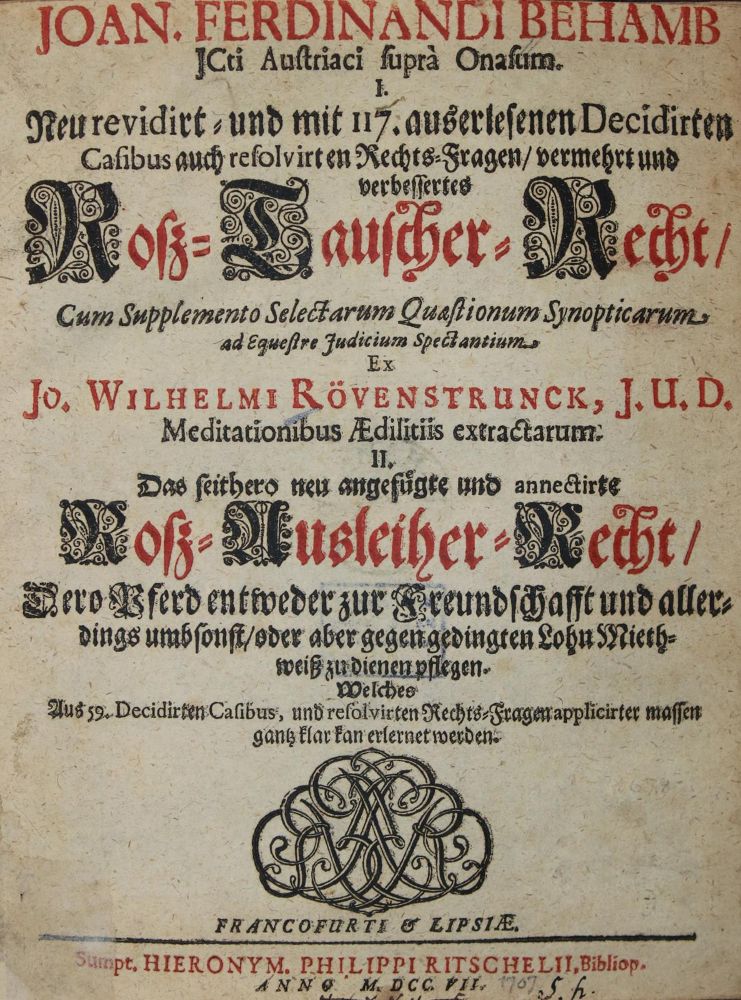 JOAN. FERDINANDI BEHAMB
JCti Austriaci suprà Onasum.
I.
Neu revidirt- und mit 117. auserlesenen Decidirten
Casibus auch resolvirten Rechts-Fragen/ vermehrt und
verbessertes
Rosz-Tauscher-Recht/
Cum Supplemento Selectarum Quæstionum Synopticarum
ad Equestre Judicium Spectantium
Ex
JO. WILHELMI RÖVENSTRUNCK, J. U. D.
Meditationibus Ædilitiis extractarum.
II.
Das seithero neu angefügte und annectirte
Rosz-Ausleiher-Recht/
Dero Pferd entweder zur Freundschafft und aller-
dings umbsonst/oder aber gegen gedingten Lohn Mieth-
weiß zu dienen pflegen.
Welches
Aus 59. Decidirten Casibus, und resolvirten Rechts-Fragen applicirter massen
gantz klar kan erlernet werden.
FRANCOFURTI & LIPSIÆ.
Sumpt. HIERONYM. PHILIPPI RITSCHELII, Bibliop.
ANNO M. DCC. VII. 1707